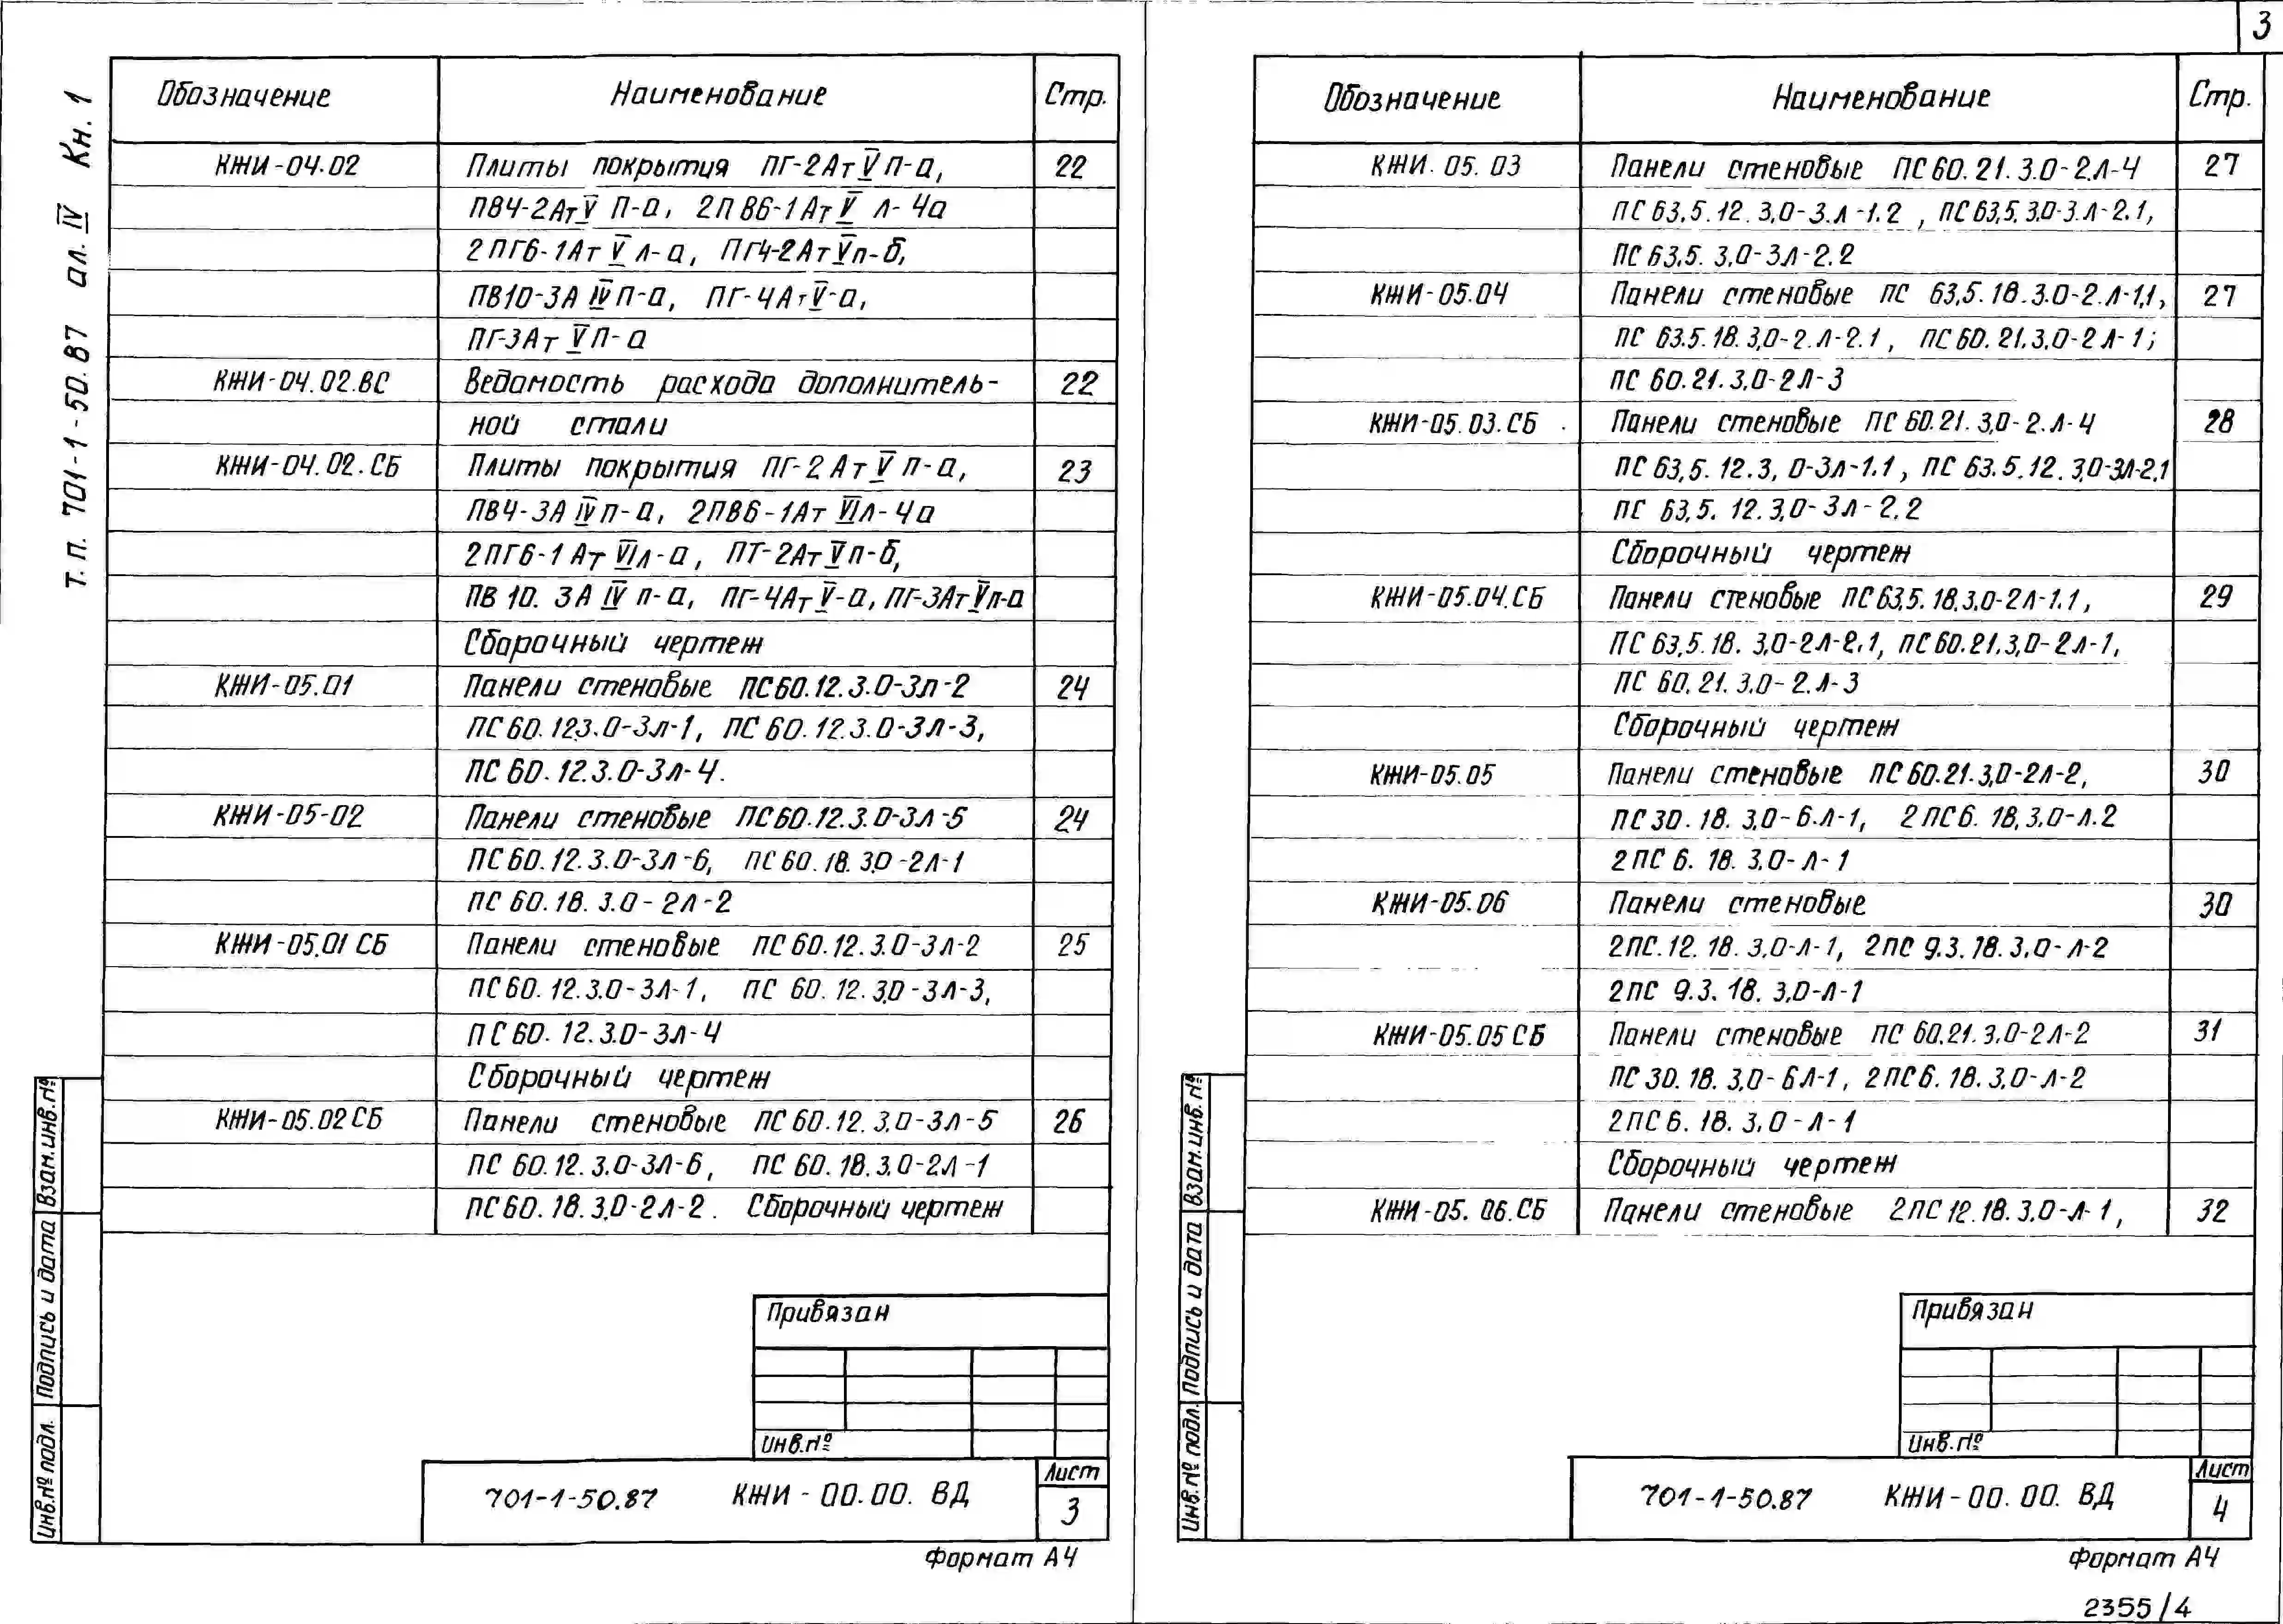 3
Т.П. 701-1-50.87 ал. IV Кн. 1
Обозначение Наименование Стр.
КЖИ-04.02 Плиты покрытия ПГ-2АтVП-а, 22
ПВ4-2АтV П-а, 2ПВ6-1АтV л-4а
2ПГ6-1АтV л-а, ПГ4-2АтVп-б,
ПВ10-3А IVП-а, ПГ-4АтV-а,
ПГ-3Ат VП-а
КЖИ-04.02.ВС Ведомость расхода дополнитель- 22
ной стали
КЖИ-04.02.СБ Плиты покрытия ПГ-2АтV п-а, 23
ПВ4-3А IVп-а, 2ПВ6-1Ат VIл-4а
2ПГ6-1Ат VIл-а, ПТ-2АтVп-б,
ПВ 10. 3А IV п-а, ПГ-4АтV-а, ПГ-3АтVп-а
Сборочный чертеж
КЖИ-05.01 Панели стеновые ПС60.12.3.0-3л-2 24
ПС60.12.3.0-3л-1, ПС 60.12.3.0-3л-3,
ПС 60.12.3.0-3л-4.
КЖИ-05-02 Панели стеновые ПС60.12.3.0-3л-5 24
ПС60.12.3.0-3л-6, ПС60.18.3,0-2л-1
ПС 60.18.3.0-2л-2
КЖИ-05.01 СБ Панели стеновые ПС60.12.3.0-3л-2 25
ПС60.12.3.0-3л-1, ПС 60.12.3,0-3л-3,
ПС60.12.3.0-3л-4
Сборочный чертеж
КЖИ-05.02 СБ Панели стеновые ПС60.12.3.0-3л-5 26
ПС 60.12.3.0-3л-6, ПС 60.18.3.0-2л-1
ПС60.18.3,0-2л-2. Сборочный чертеж
Привязан
Инв.№
701-1-50.87 КЖИ-00.00. ВД
Лист
3
Формат А4
Взам.инв.№
Подпись и дата
Инв.№ подл.
Обозначение Наименование Стр.
КЖИ.05.03 Панели стеновые ПС60.21.3.0-2.л-4 27
ПС63.5.12.3,0-3.л-1.2, ПС63,5.3.0-3.л-2.1,
ПС63,5.3,0-3л-2.2
КЖИ-05.04 Панели стеновые ПС 63,5.18.3.0-2.л-1,1, 27
ПС 63.5.18.3,0-2.л-2.1, ПС60.21.3,0-2л-1;
ПС 60.21.3,0-2л-3
КЖИ-05.03.СБ Панели стеновые ПС60.21.3,0-2.л-4 28
ПС63,5.12.3,0-3л-1.1, ПС 63.5.12.3,0-3л-2.1
ПС 63,5.12.3,0-3л-2.2
Сборочный чертеж
КЖИ-05.04.СБ Панели стеновые ПС63,5.18.3,0-2л-1.1, 29
ПС63,5.18.3,0-2л-2,1, ПС60.21.3,0-2л-1,
ПС 60.21.3,0-2.л-3
Сборочный чертеж
КЖИ-05.05 Панели стеновые ПС60.21.3,0-2л-2, 30
ПС30.18.3,0-6.л-1, 2ПС6.18,3,0-л.2
2ПС6.18.3,0-л-1
КЖИ-05.06 Панели стеновые 30
2ПС.12.18.3,0-л-1, 2ПС 9.3.18.3,0-л-2
2ПС 9.3.18.3,0-л-1
КЖИ-05.05 СБ Панели стеновые ПС 60.21.3,0-2л-2 31
ПС30.18.3,0-6л-1, 2ПС6.18.3,0-л-2
2ПС6.18.3,0-л-1
Сборочный чертеж
КЖИ-05.06.СБ Панели стеновые 2ПС12.18.3.0-л-1, 32
Привязан
Инв.№
701-1-50.87 КЖИ-00.00. ВД
Лист
4
Формат А4
Взам.инв.№
Подпись и дата
Инв.№ подл.
2355/4